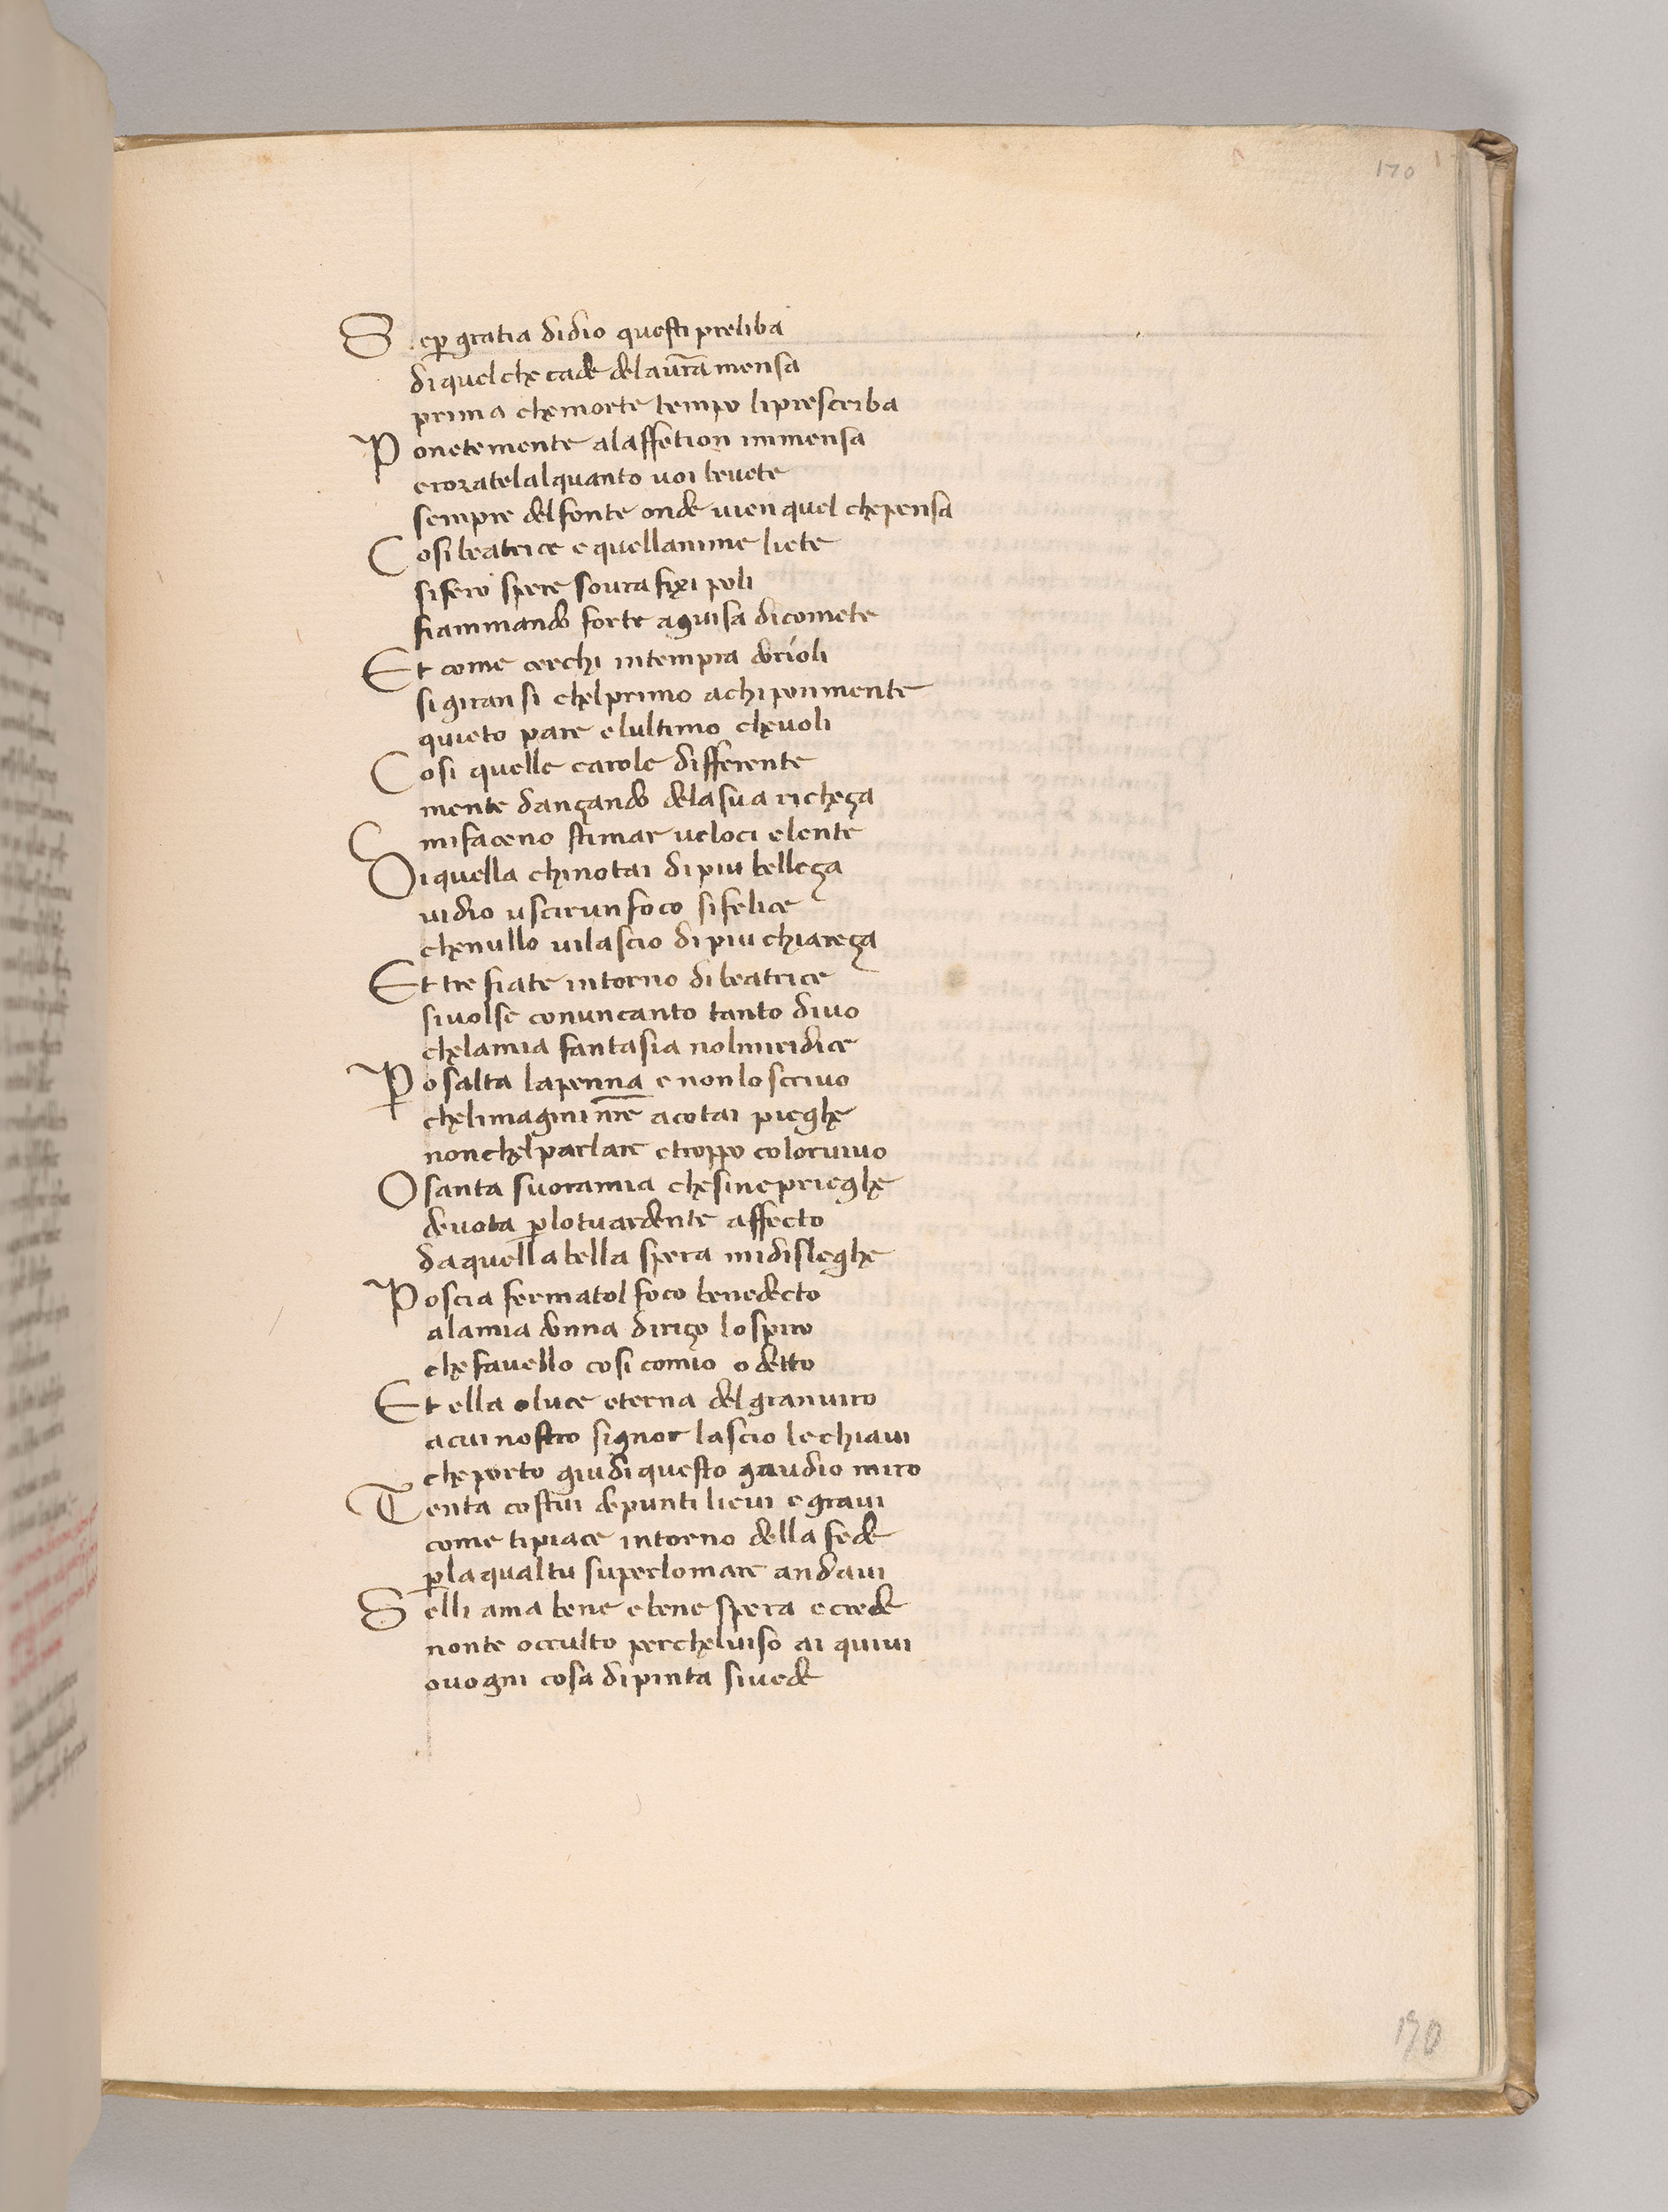 170
Se p̲ gratia didio questi preliba
di quel che cade dela ur̅a mensa
prima che morte tempo li prescriba
Ponete mente al affetion immensa
e rorate lalquanto voi bevete
sempre del fonte onde vien quel che pensa
Cosi beatrice e quellanime liete
si fero spere sovra fixi poli
fiammando forte aguisa di comete
Et come cerchi in tempra dorioli
si giran si chel primo a chi pon mente
quieto pare e lultimo che voli
Cosi quelle carole differente
mente dançando dela sua richeça
mi faceno stimar veloci e lente
Di quella chi notai di piu belleça
vidio uscir un foco si felice
che nullo vi lascio di piu chiareça
Et tre fiate intorno di beatrice
si volse con un canto tanto divo
che la mia fantasia nol mi ridice
Po salta la penna e non lo scrivo
che limagini nr̅e a cotai pieghe
non chel parlare e troppo color vivo
O santa suora mia che si ne prieghe
devota p̲ lo tuardente affecto
da quella bella spera mi disleghe
Poscia fermatol foco benedecto
a la mia donna diriço lo spiro
che favello cosi comio o detto
Et ella o luce eterna del gran viro
a cui nostro signor lascio le chiavi
che porto giu di questo gaudio miro
Tenta costui de punti lievi e gravi
come ti piace intorno della fede
p̲ la qual tu super lo mare andavi
Selli ama bene e bene spera e crede
non te occulto perchel viso ai quivi
ovogni cosa dipinta si vede
170